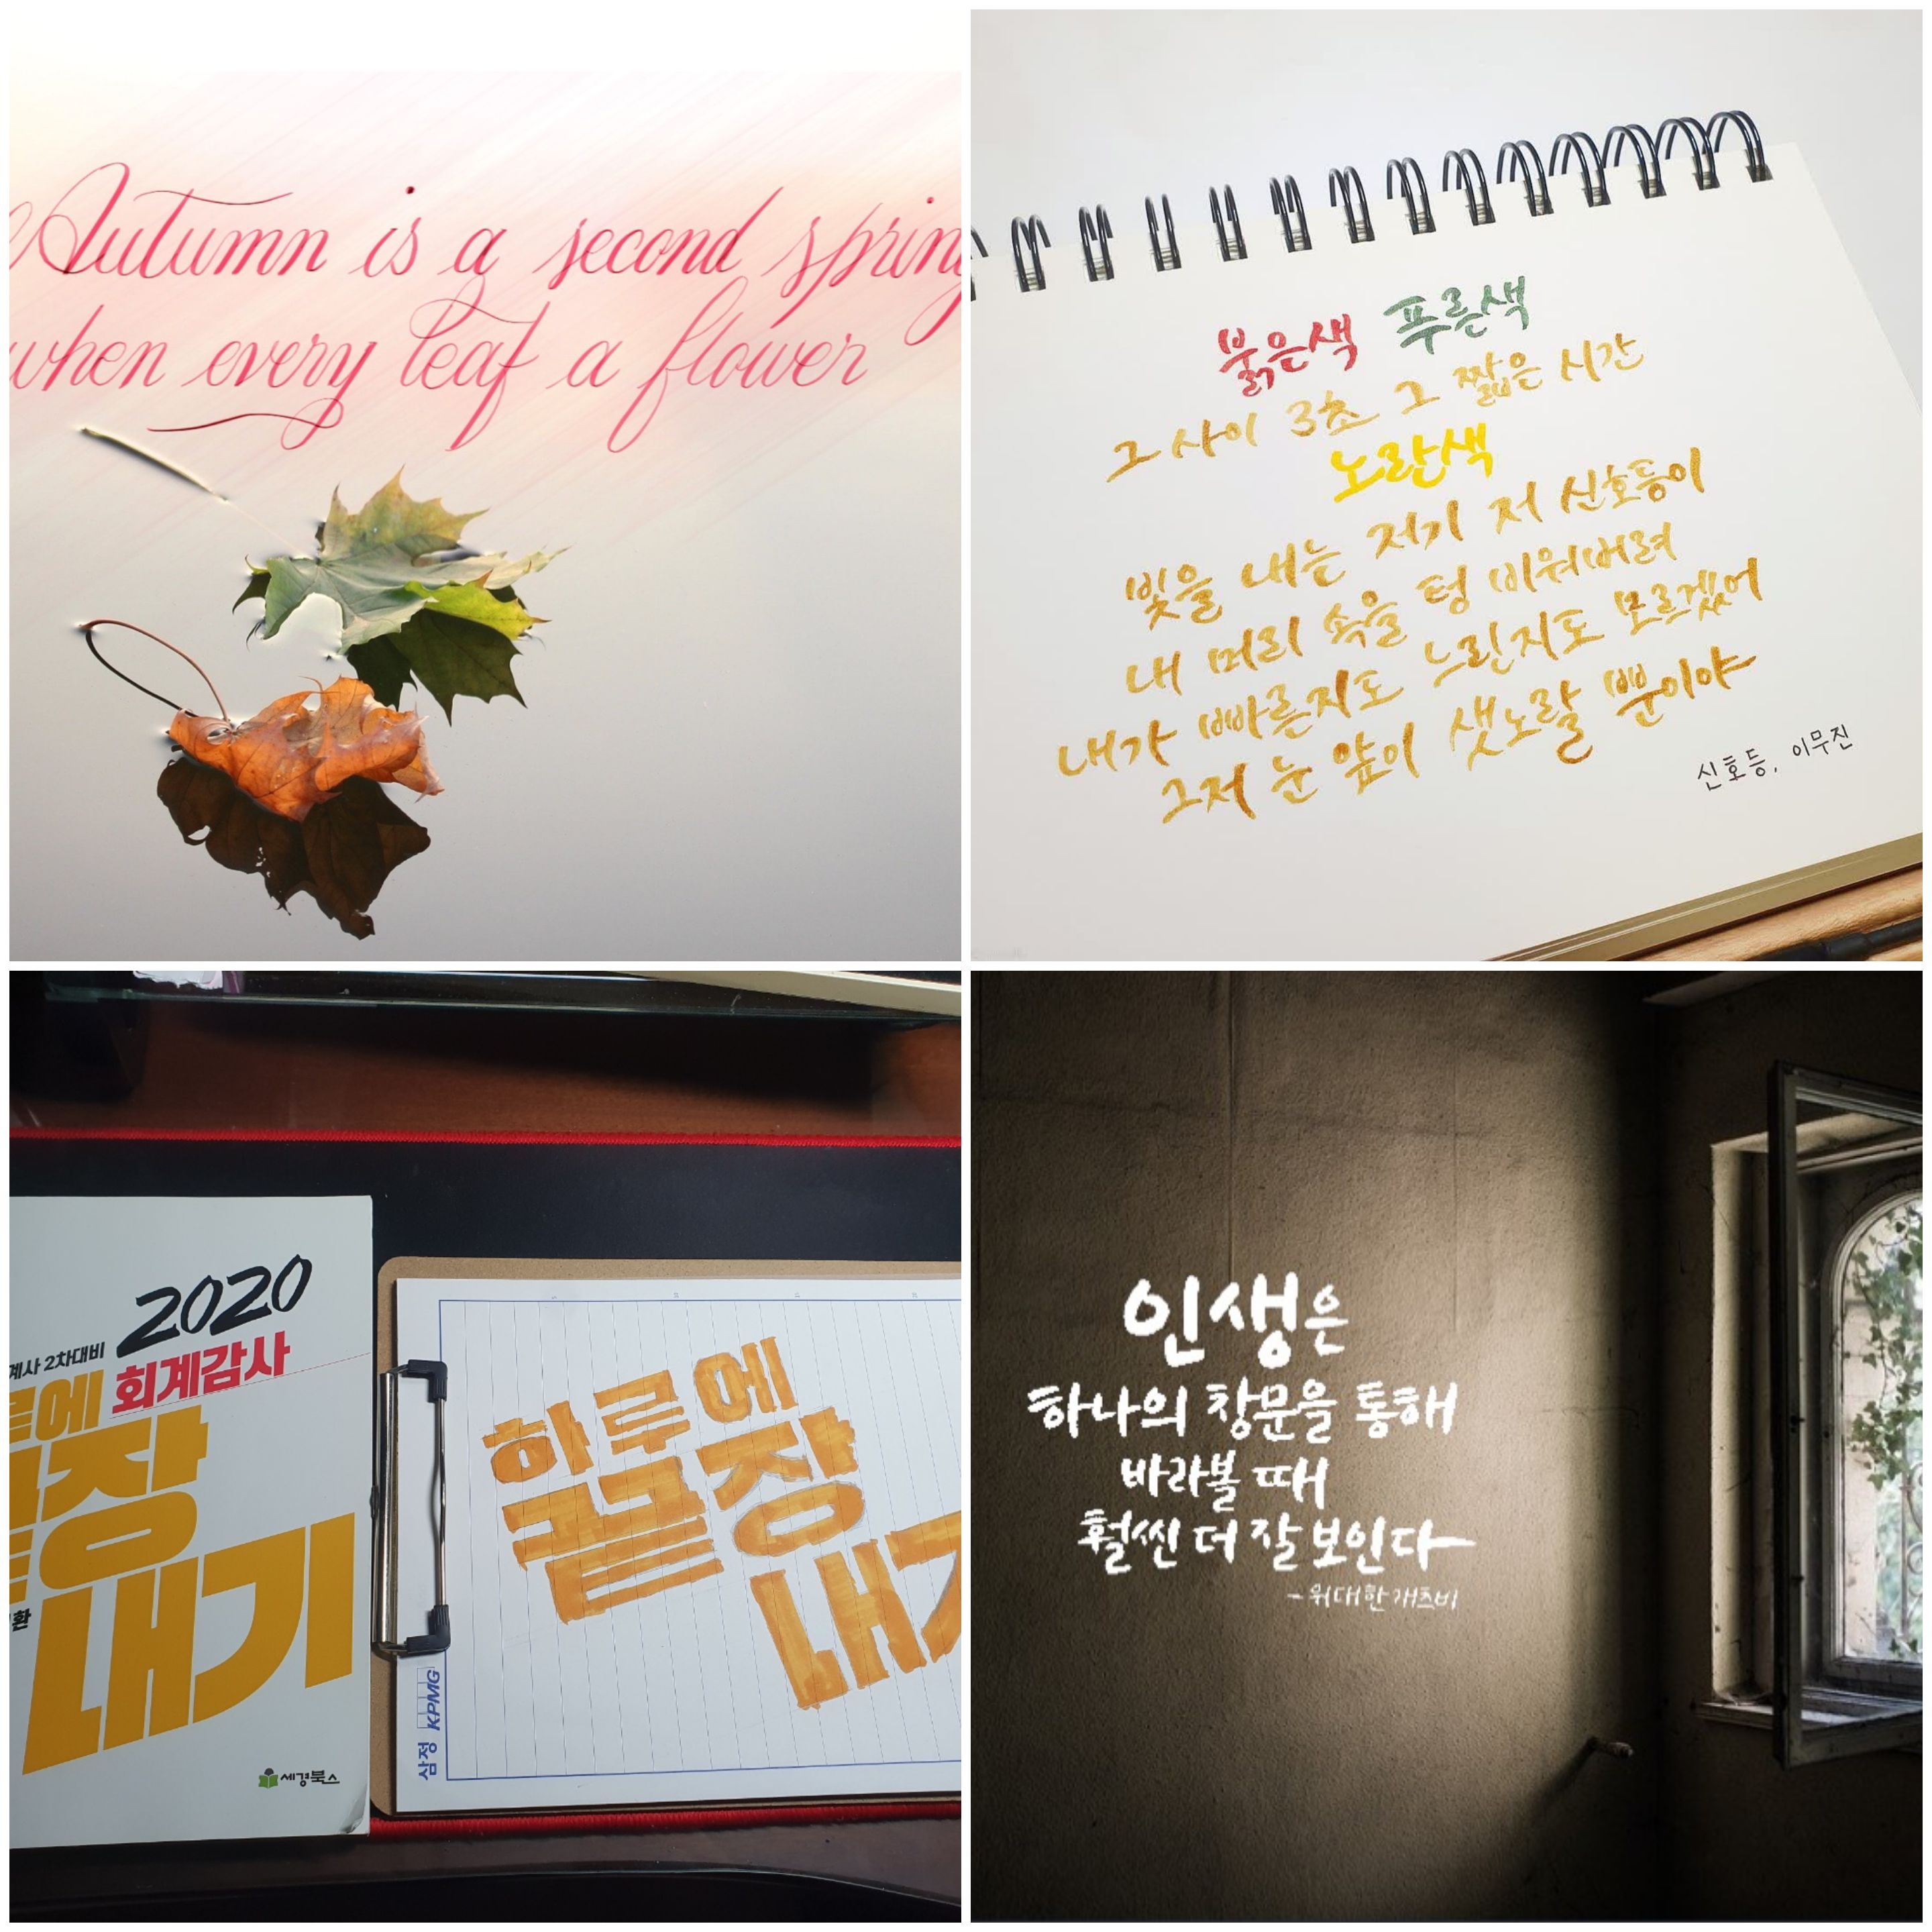 Autumn is a second spring
when every leaf a flower
붉은색 푸른색
그 사이 3초 그 짧은 시간
노란색
빛을 내는 저기 저 신호등이
내 머리 속을 텅 비워버려
내가 빠른지도 느린지도 모르겠어
그저 눈 앞이 샛노랄 뿐이야
신호등, 이무진
2020
계사 2차대비
회계감사
루에
끝장
내기
환
세경북스
하루에
끝장
내기
삼정 KPMG
인생은
하나의 창문을 통해
바라볼 때
훨씬 더 잘 보인다
- 위대한 개츠비